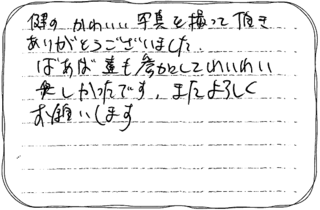 健の かわいい 写真を撮って頂き
ありがとうございました.
ばあば達も参加してわいわい
楽しかったです, またよろしく
お願いします